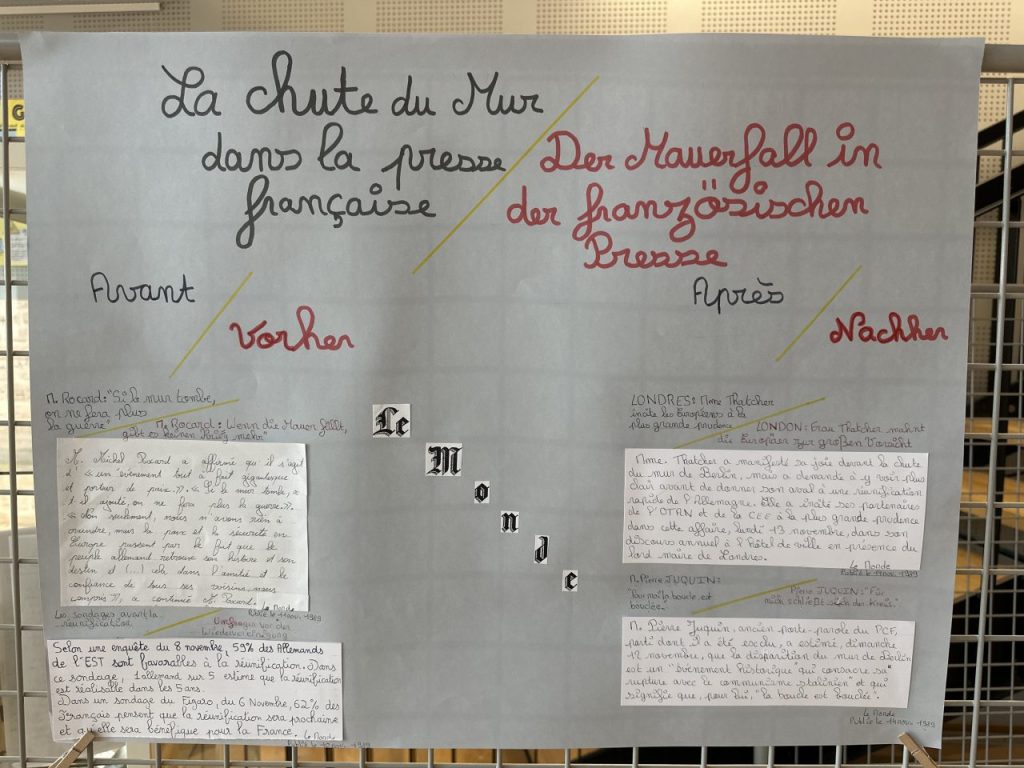 La chute du Mur
dans la presse
française
Der Mauerfall in
der französischen
Presse
Avant
Vorher
Après
Nachher
M. Rocard: "Si le mur tombe,
on ne fera plus
la guerre"
M. Rocard: Wenn die Mauer fällt,
gibt es keinen Krieg mehr"
M. Michel Rocard a affirmé qu'il s'agit
d' « un événement tout à fait gigantesque
et porteur de paix ». « Si le mur tombe, a
t-il ajouté, on ne fera plus la guerre ».
« Non seulement, nous n'avons rien à
craindre, mais la paix et la sécurité en
Europe passent par le fait que le
peuple allemand retrouve son histoire et son
destin et (...) cela dans l'amitié et la
confiance de tous ses voisins, nous
compris », a continué M. Rocard.
Le Monde
Publié le 11 nov. 1989
Les sondages avant la
réunification
Umfragen vor der
Wiedervereinigung
Selon une enquête du 8 novembre, 59% des Allemands
de l'EST sont favorables à la réunification. Dans
ce sondage, 1 allemand sur 5 estime que la réunification
est réalisable dans les 5 ans.
Dans un sondage du Figaro, du 6 Novembre, 62% des
Français pensent que la réunification sera prochaine
et qu'elle sera bénéfique pour la France.
Le Monde
Publié le nov. 1989
Le
M
o
n
d
e
LONDRES: Mme Thatcher
incite les Européens à la
plus grande prudence
LONDON: Frau Thatcher mahnt
die Europäer zur großen Vorsicht
Mme. Thatcher a manifesté sa joie devant la chute
du mur de Berlin, mais a demandé à y voir plus
clair avant de donner son aval à une réunification
rapide de l'Allemagne. Elle a incité ses partenaires
de l'OTAN et de la CEE à la plus grande prudence
dans cette affaire, lundi 13 novembre, dans son
discours annuel à l'hôtel de ville en présence du
lord maire de Londres.
Le Monde
Publié le 14 nov. 1989
M. Pierre JUQUIN:
"Pour moi la boucle est
bouclée"
Pierre JUQUIN: "Für
mich schließt sich der Kreis."
M. Pierre Juquin, ancien porte-parole du PCF,
parti dont il a été exclu, a estimé, dimanche
12 novembre, que la disparition du mur de Berlin
est un "événement historique" qui consacre sa "
rupture avec le communisme stalinien" et qui
signifie que, pour lui, "la boucle est bouclée".
Le Monde
Publié le 14 nov. 1989